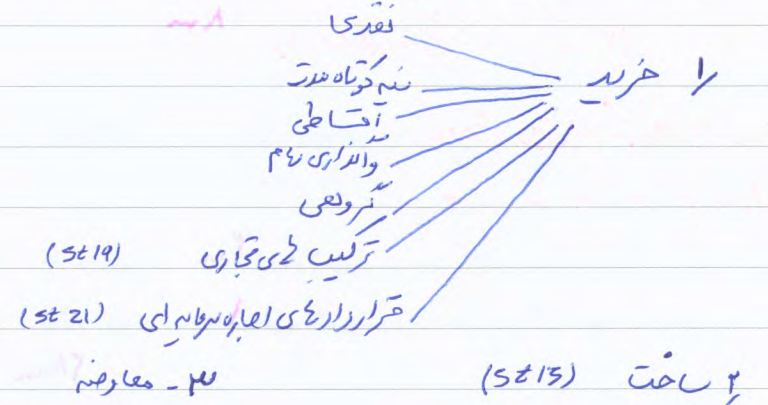 نقدی
۱/ خرید
نسیه کوتاه مدت
اقساطی
واگذاری سهام
گروهی
ترکیب های تجاری (St 19)
قراردادهای اجاره سرمایه ای (St 21)
۲/ ساخت (St 15)
۳- معاوضه